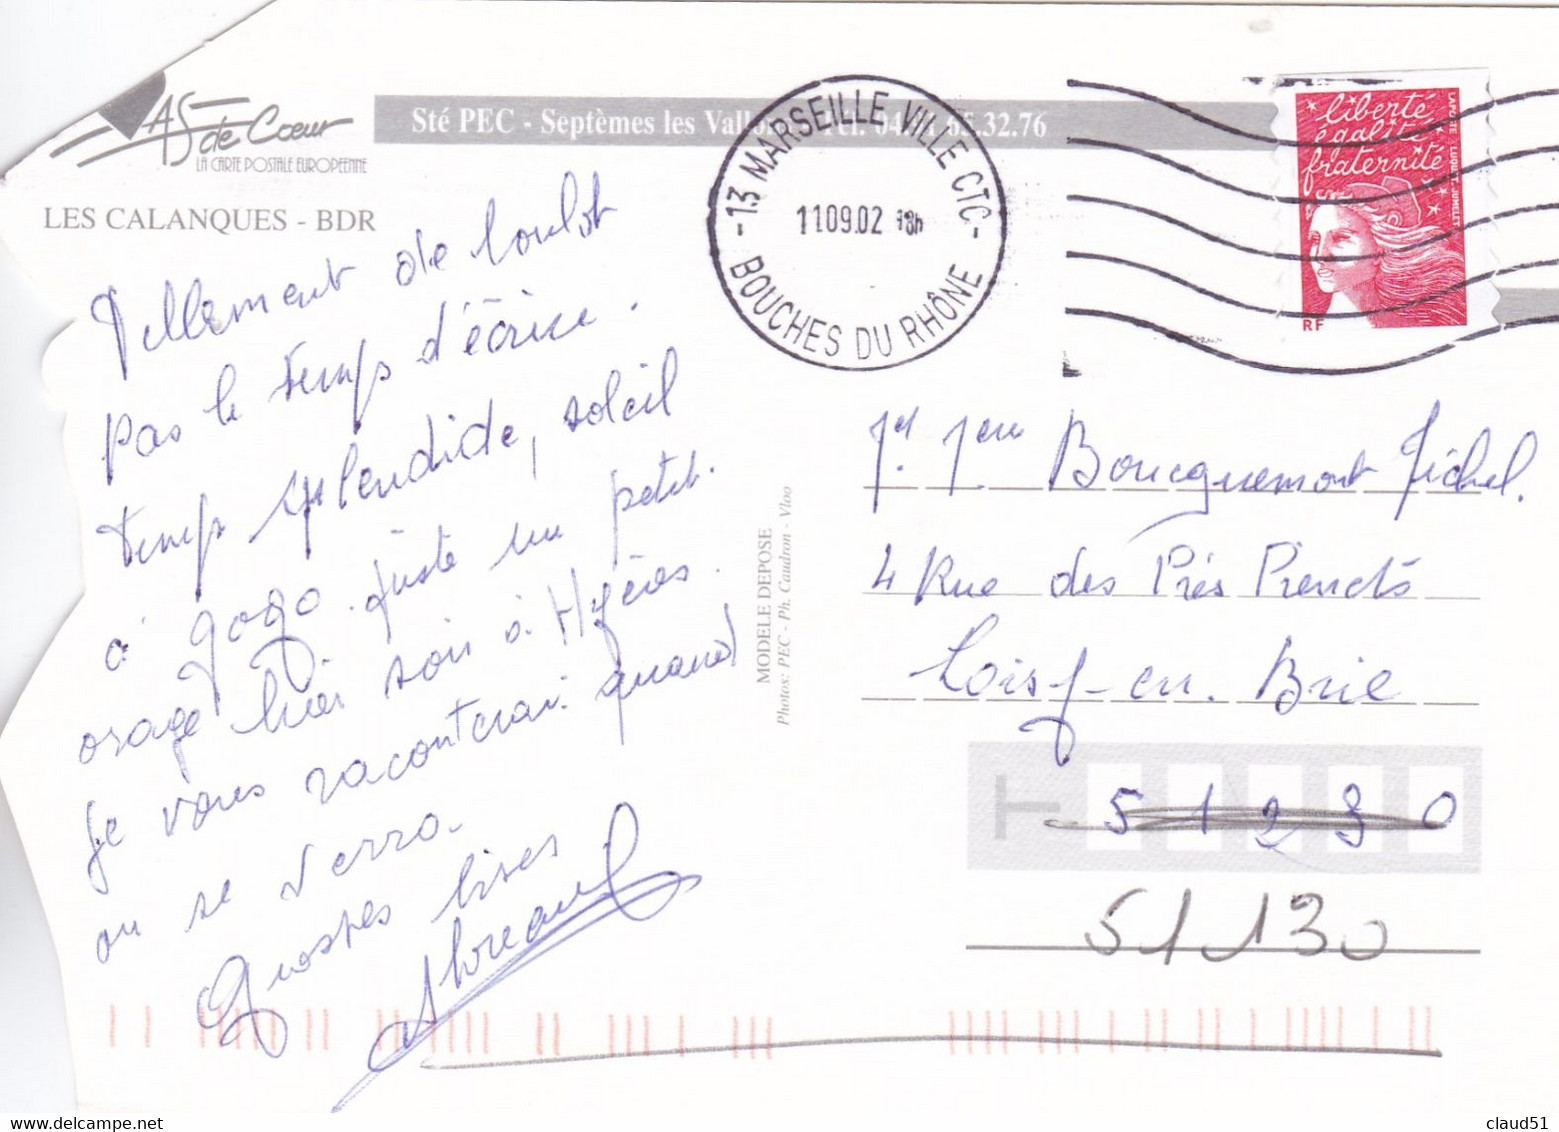 AS de Coeur
LA CARTE POSTALE EUROPEENNE
Sté PEC - Septèmes les Vallons 65.32.76
LES CALANQUES - BDR
13 MARSEILLE VILLE CTC
110902 18h
BOUCHES DU RHÔNE
liberté
égalité
fraternité
RF
Tellement de boulot
pas le temps d'écrire.
temps splendide, soleil
à gogo. juste un petit
orage hier soir à Hyères.
Je vous raconterai quand
on se verra.
Grosses bises
MODELE DEPOSE
Photos: PEC - Ph. Caudron - Vloo
Boucquemont Michel.
4 Rue des Prés
Loisy-en-Brie
51230
51130
claud51